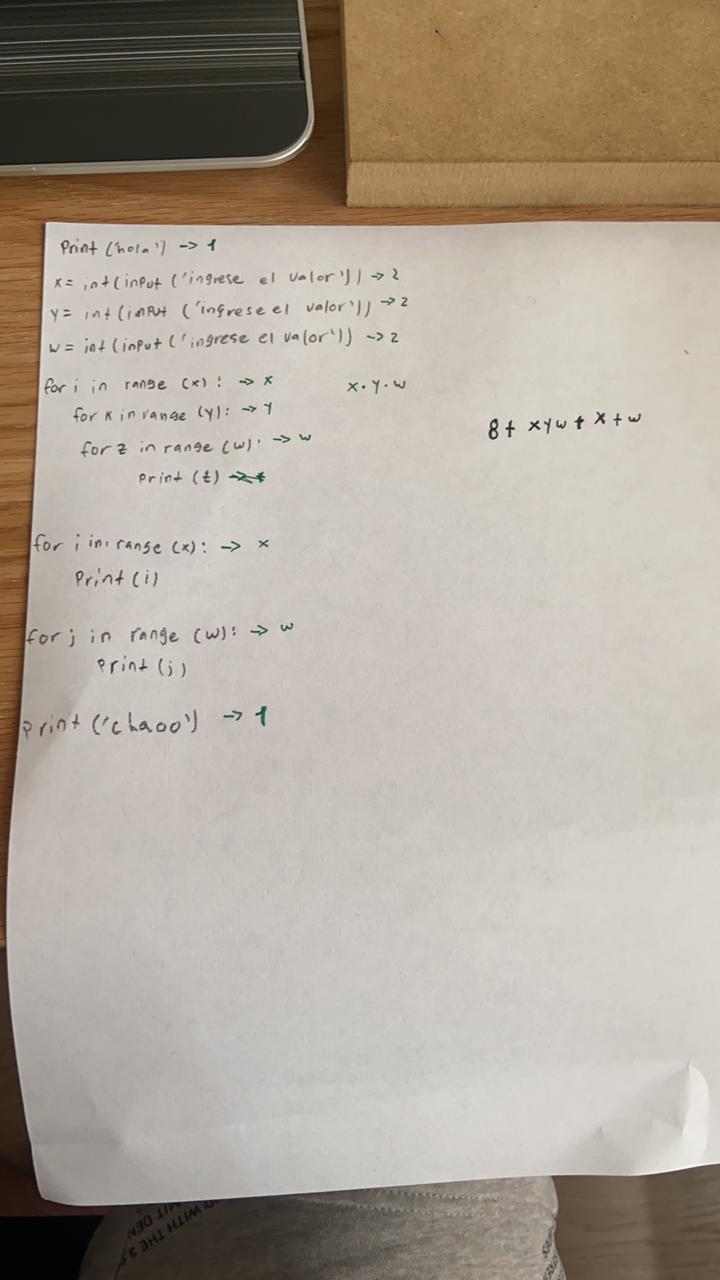 Print ('hola') -> 1
x = int(input ('ingrese el valor')) -> 2
y = int(input ('ingrese el valor')) -> 2
w = int(input ('ingrese el valor')) -> 2
for i in range (x): -> x
x·y·w
for k in range (y): -> y
for z in range (w): -> w
8+ xyw + x + w
print (z)
for i in range (x): -> x
Print (i)
for j in range (w): -> w
Print (j)
Print ('chaoo') -> 1
WITH THE